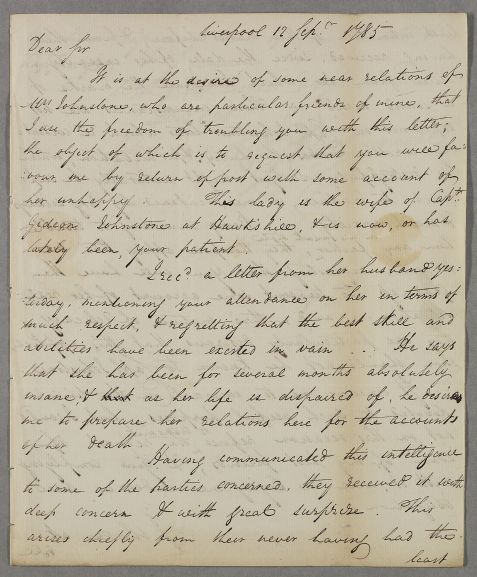 Liverpool 12 Sepr. 1785
Dear Sir
It is at the desire of some near relations of
Mrs Johnstone, who are particular friends of mine, that
I use the freedom of troubling you with this letter;
the object of which is to request that you will fa=
vour me by return of post with some account of
her unhappy This lady is the wife of Capt.
Gideon Johnstone at Hawkshill, & is now, or has
lately been, your patient.
I recd. a letter from her husband yes=
terday, mentioning your attendance on her in terms of
much respect, & regretting that the best skill and
abilities have been exerted in vain ... He says
that she has been for several months absolutely
insane & that as her life is dispaired of, he desires
me to prepare her relations here for the accounts
of her death.
Having communicated this intelligence
to some of the parties concerned, they received it with
deep concern & with great surprize. This
arises chiefly from their never having had the
least